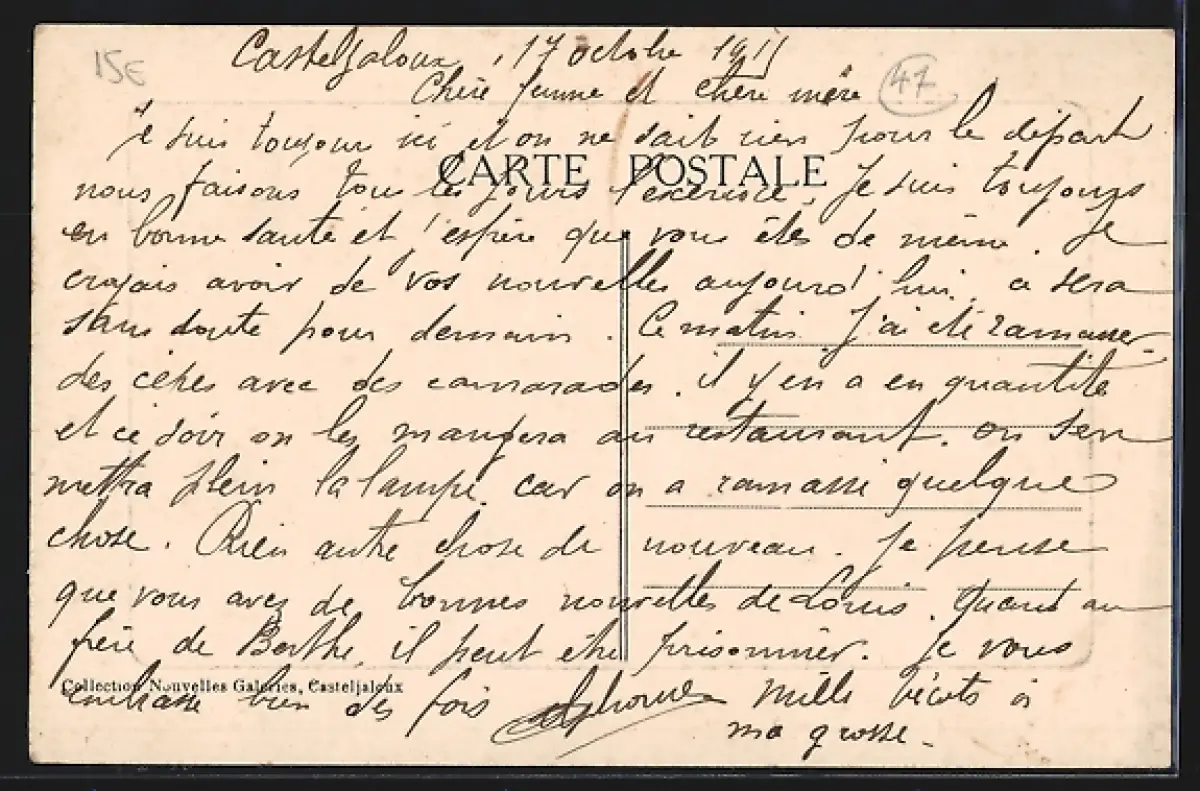 15€
Casteljaloux, 17 octobre 191
47
Chère femme et chère mère
Je suis toujours ici et on ne sait rien pour le départ
CARTE POSTALE
nous faisons tous les jours l'exercice. Je suis toujours
en bonne santé et j'espère que vous êtes de même. Je
croyais avoir de vos nouvelles aujourd'hui, ce sera
sans doute pour demain. Ce matin j'ai été ramasser
des cèpes avec des camarades. il y en a en quantité
et ce soir on les mangera au restaurant. on s'en
mettra plein la lampe car on a ramassé quelque
chose. Rien autre chose de nouveau. Je pense
que vous avez de bonnes nouvelles de Louis. Quant au
frère de Berthe, il peut être prisonnier. Je vous
Collection Nouvelles Galeries, Casteljaloux
embrasse bien des fois Alphonse Mille bécots à
ma grosse.